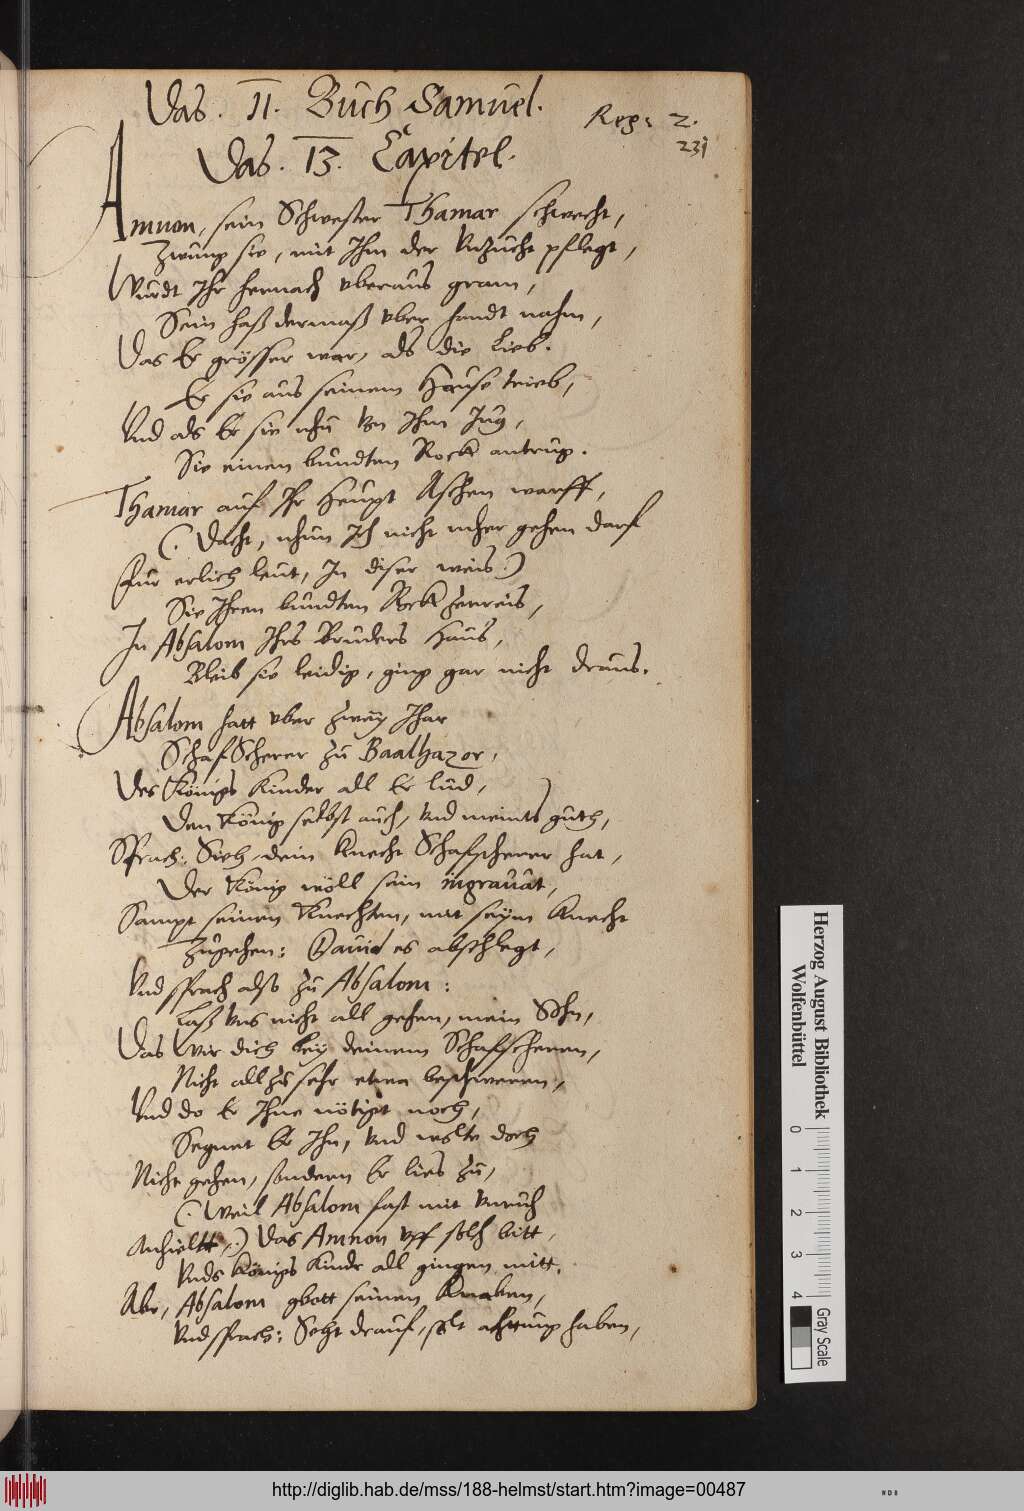 Das. II. Buch Samuel.
Reg: 2.
231
Das. 13. Capitel.
Amnon, sein Schwester Thamar schwecht,
Zwung sie, mit Ihm der Vnzucht pflegt,
Wurdt Ihr hernach vberaus gram,
Sein haß dermaß vber handt nahm,
Das Er grösser war, als die Lieb.
Er sie aus seinem Hause trieb,
Vnd als Er sie nhu von Ihm
Sie einen bundten Rock antrug.
Thamar auf Ihr Heupt Aschen warff,
(. Dacht, nhun Ich nicht mher gehen darf
Fur erlich leut, In diser weis.)
Sie Ihren bundten Rock zerreis,
In Absalom Ihrs Bruders Haus,
Bleib sie leidig, ging gar nicht draus.
Absalom hatt vber zwey Ihar
SchafScherer zu Baalhazor,
Des Königs Kinder all Er lud,
Den König selbst auch, vnd meints guth,
Sprach: Sieh, dein Knecht Schafscherer hat,
Der König wöll sein ingrauat,
Sampt seinen Knechten, mit seym Knecht
Zugehen: Dauid es abschlegt,
Vnd sprach also zu Absalom:
Laß vns nicht all gehen, mein Sohn,
Das Wir dich bey deinem Schafscheren,
Nicht all zu sehr etwa beschweren,
Vnd do Er Ihne nötigt noch,
Segnet Er Ihn, vnd wolte doch
Nicht gehen, sondern Er lies zu,
(. Weil Absalom fast mit vnruh
Anhieltt,.) Das Amnon vff solch bitt,
Vnds Königs Kindr all gingen mitt.
Abr, Absalom gbott seinen Knaben,
Vnd sprach: Seht drauf, solt achtung haben,
Herzog August Bibliothek
Wolfenbüttel
0 1 2 3 4
Gray Scale
http://diglib.hab.de/mss/188-helmst/start.htm?image=00487